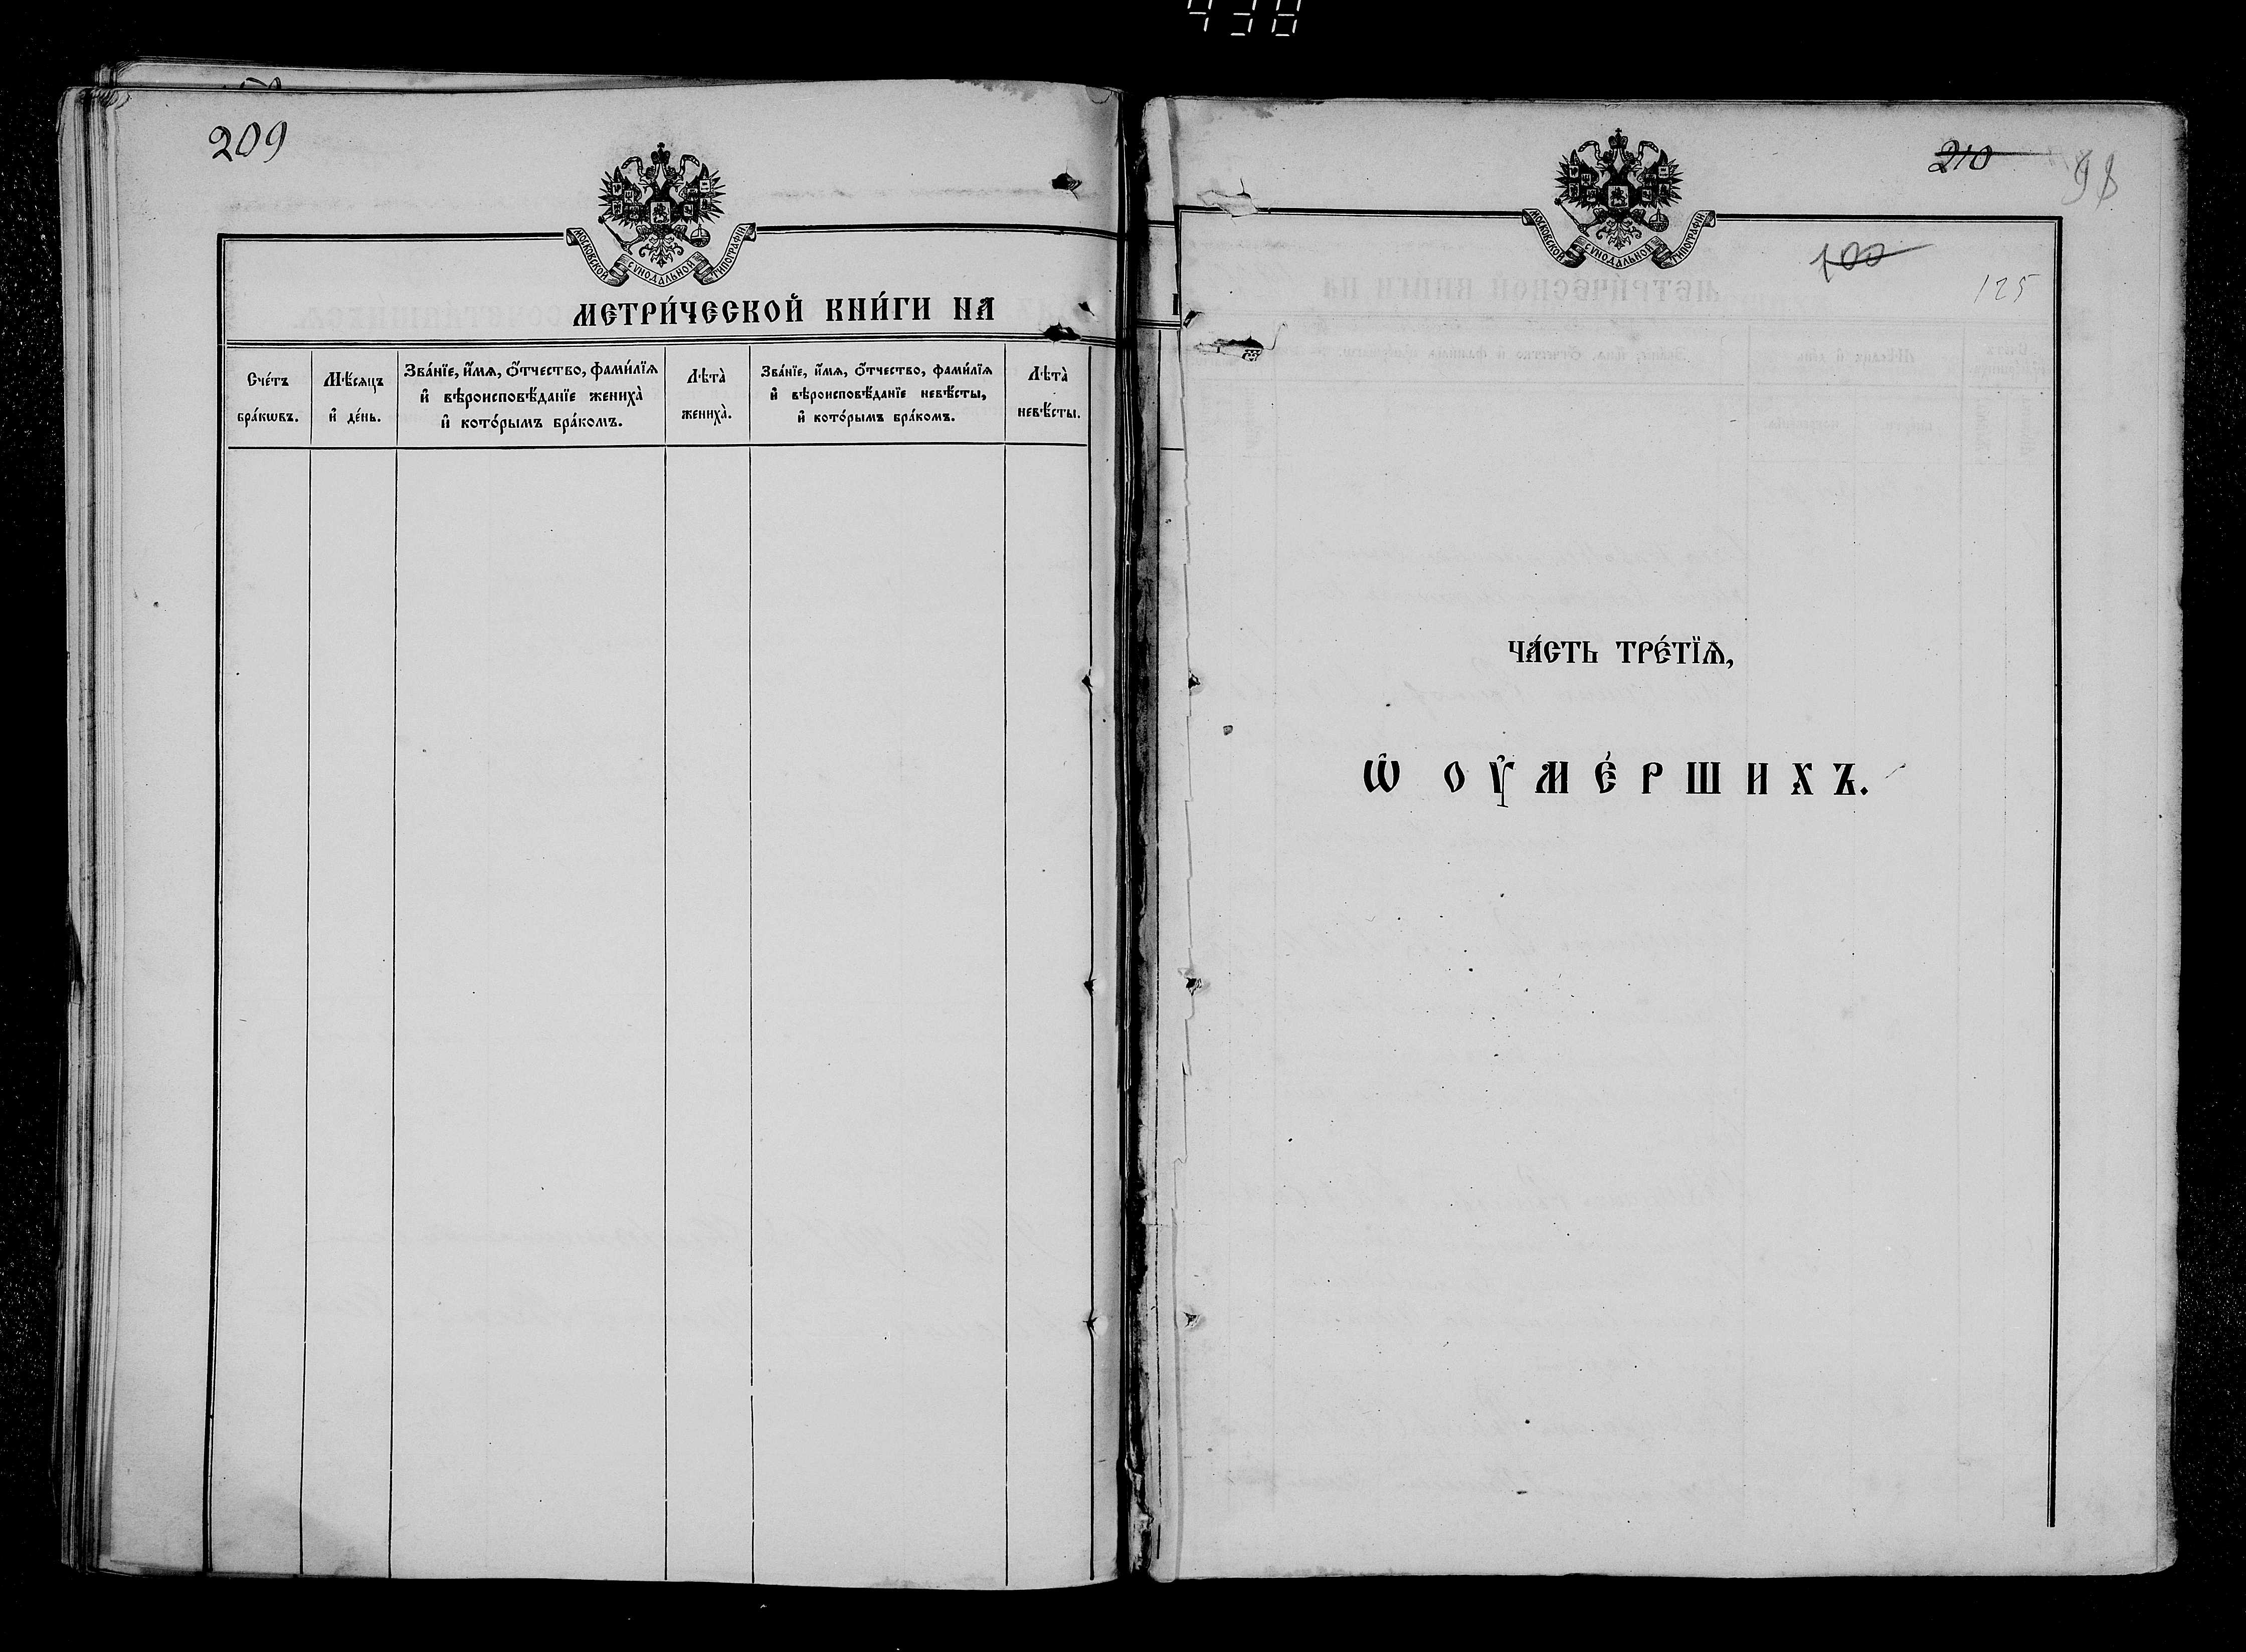 438
209
МОСКОВСКОЙ СѴНОДАЛЬНОЙ ТИПОГРАФІИ
МЕТРИ́ЧЕСКОЙ КНИ́ГИ НА
Сче́тъ бра́кѡвъ.
Мѣ́сѧцъ и҆ де́нь.
Зва́нїе, и҆́мѧ, ѻ҆́тчество, фами́лїѧ
и҆ вѣроисповѣ́данїе жениха̀
и҆ кото́рымъ бра́комъ.
Лѣта̀ жениха̀.
Зва́нїе, и҆́мѧ, ѻ҆́тчество, фами́лїѧ
и҆ вѣроисповѣ́данїе невѣ́сты,
и҆ кото́рымъ бра́комъ.
Лѣта̀ невѣ́сты.
210
98
МОСКОВСКОЙ СѴНОДАЛЬНОЙ ТИПОГРАФІИ
100
125
ЧА́СТЬ ТРЕ́ТЇѦ,
Ѽ ОУ҆МЕ́РШИХЪ.